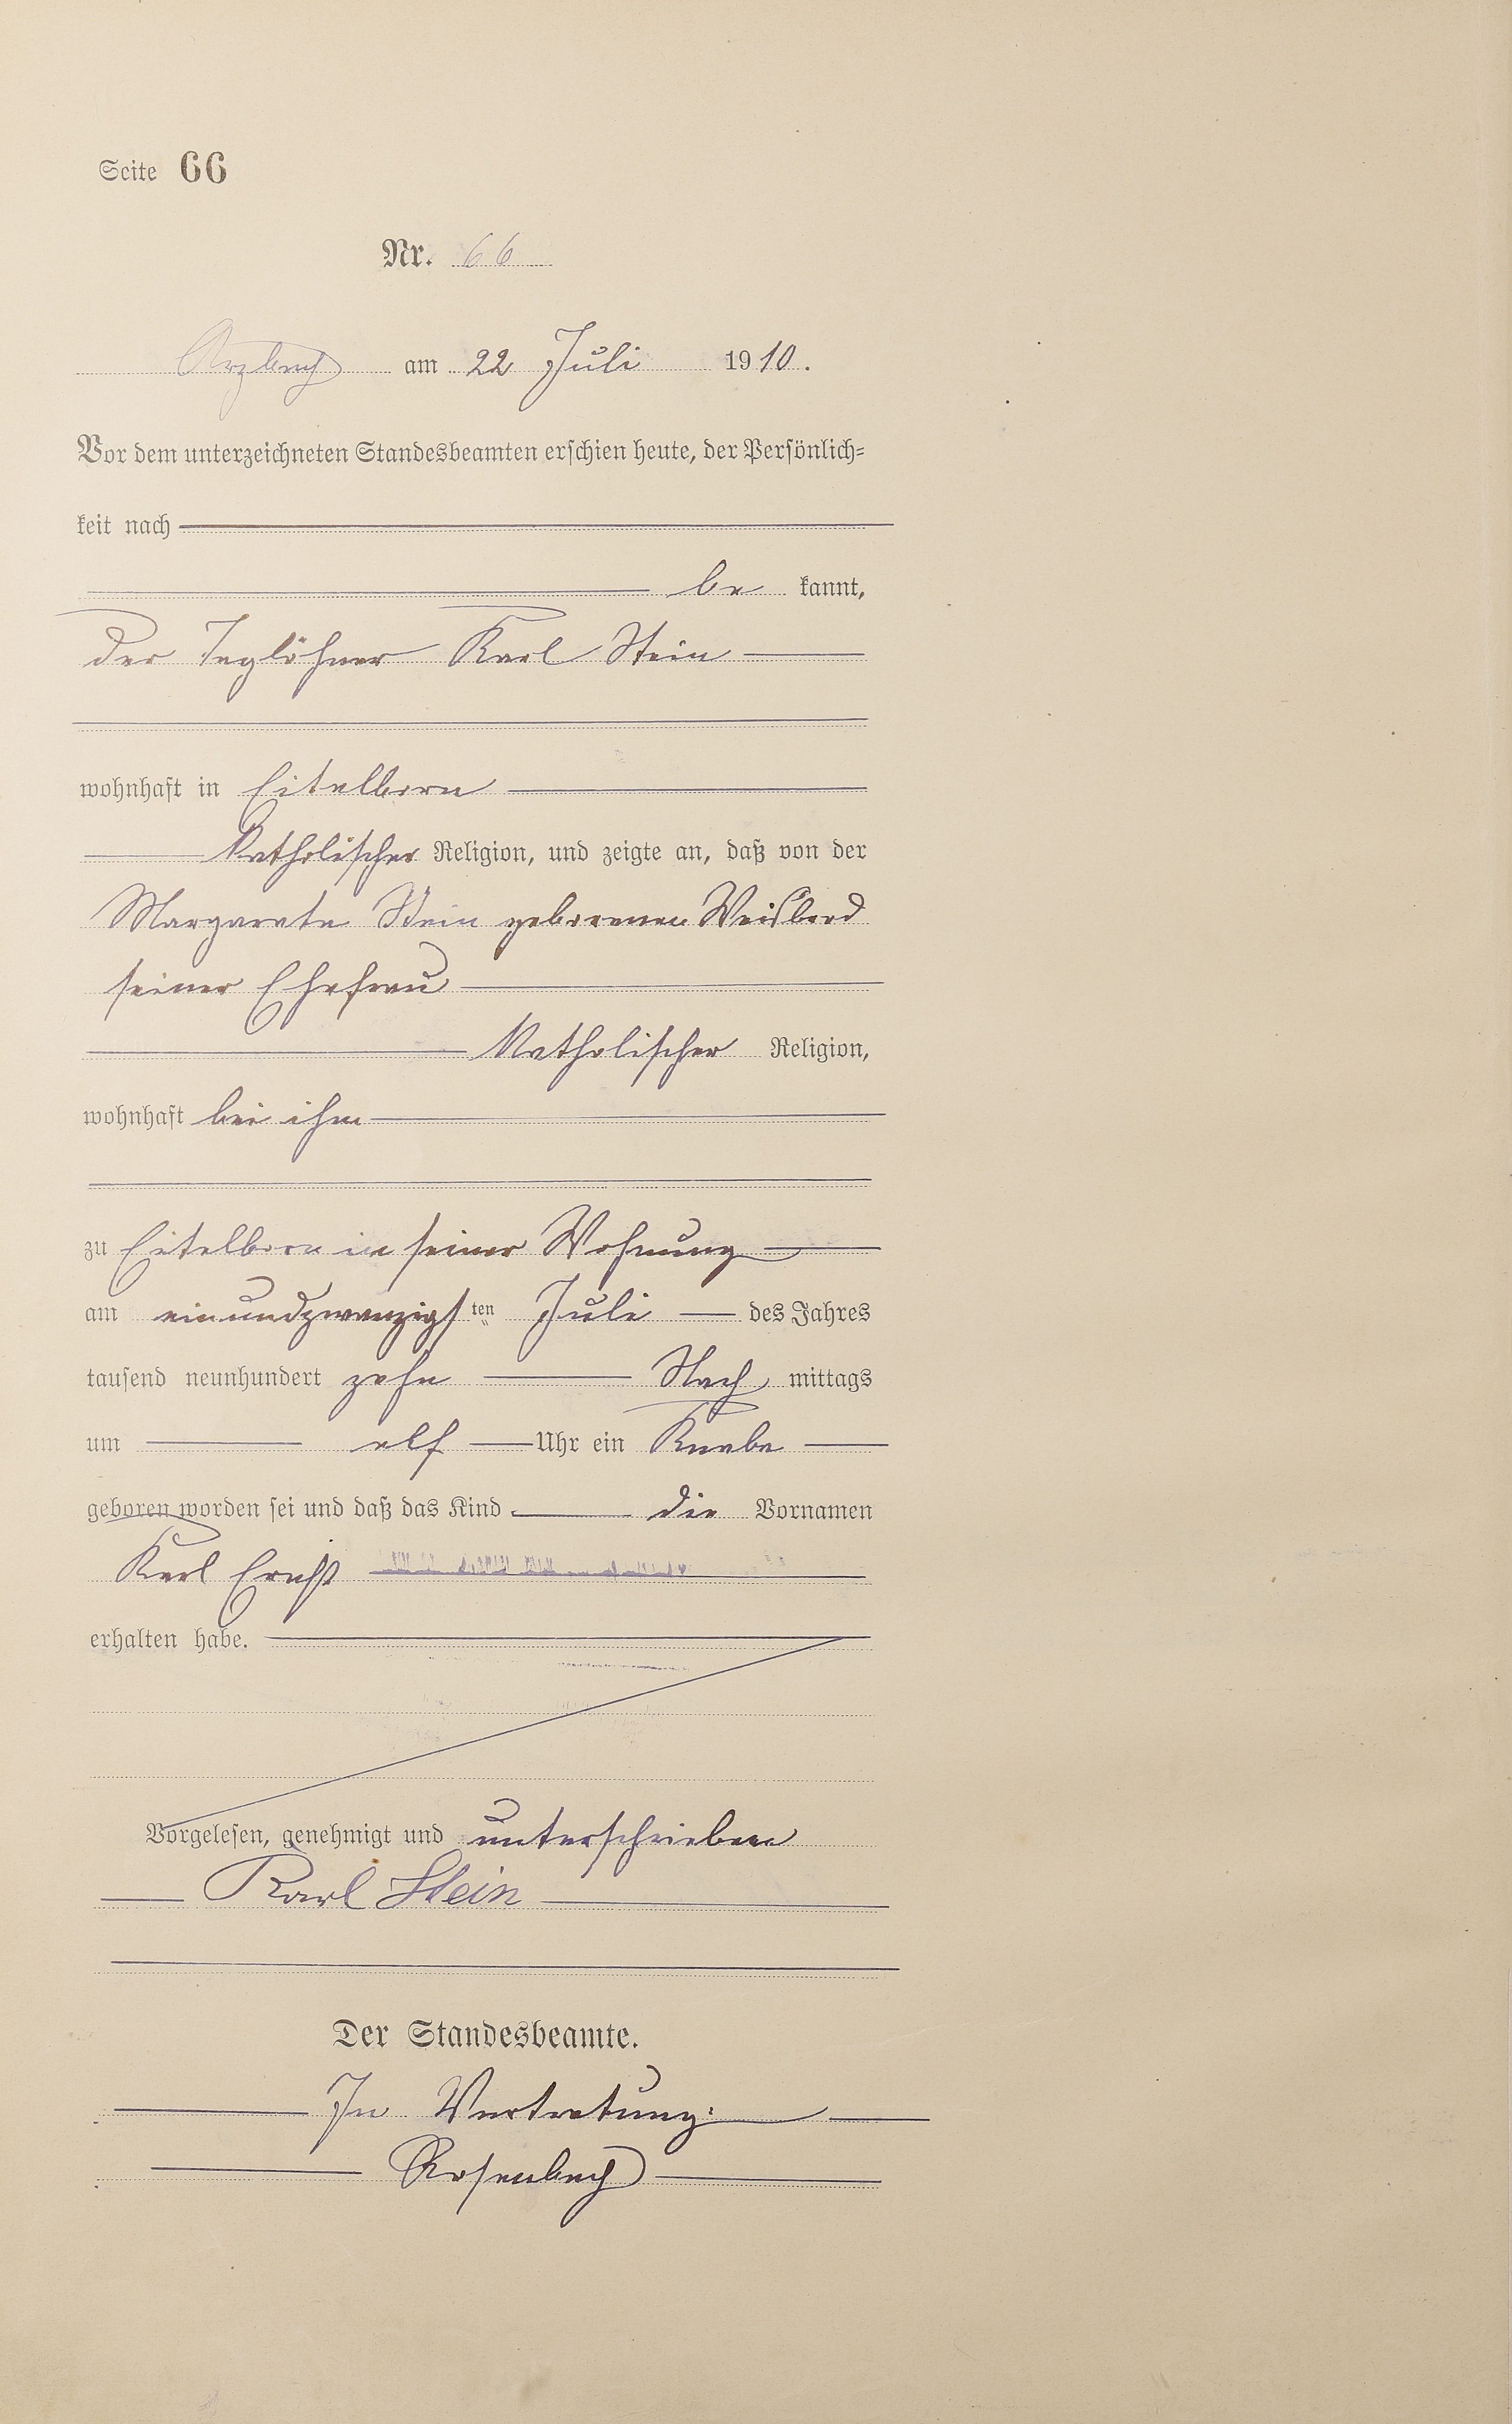 Seite 66
Nr. 66
Arzbach am 22 Juli 1910.
Vor dem unterzeichneten Standesbeamten erschien heute, der Persönlich-
keit nach
be kannt,
der Taglöhner Karl Stein
wohnhaft in Eitelborn
katholischer Religion, und zeigte an, daß von der
Margarete Stein geborenen
seiner Ehefrau
katholischer Religion,
wohnhaft bei ihm
zu Eitelborn in seiner Wohnung
am einundzwanzigsten Juli des Jahres
tausend neunhundert zehn Nach mittags
um elf Uhr ein Knabe
geboren worden sei und daß das Kind die Vornamen
Karl Ernst
erhalten habe.
Vorgelesen, genehmigt und unterschrieben
Karl Stein
Der Standesbeamte.
In Vertretung:
Rosenbach